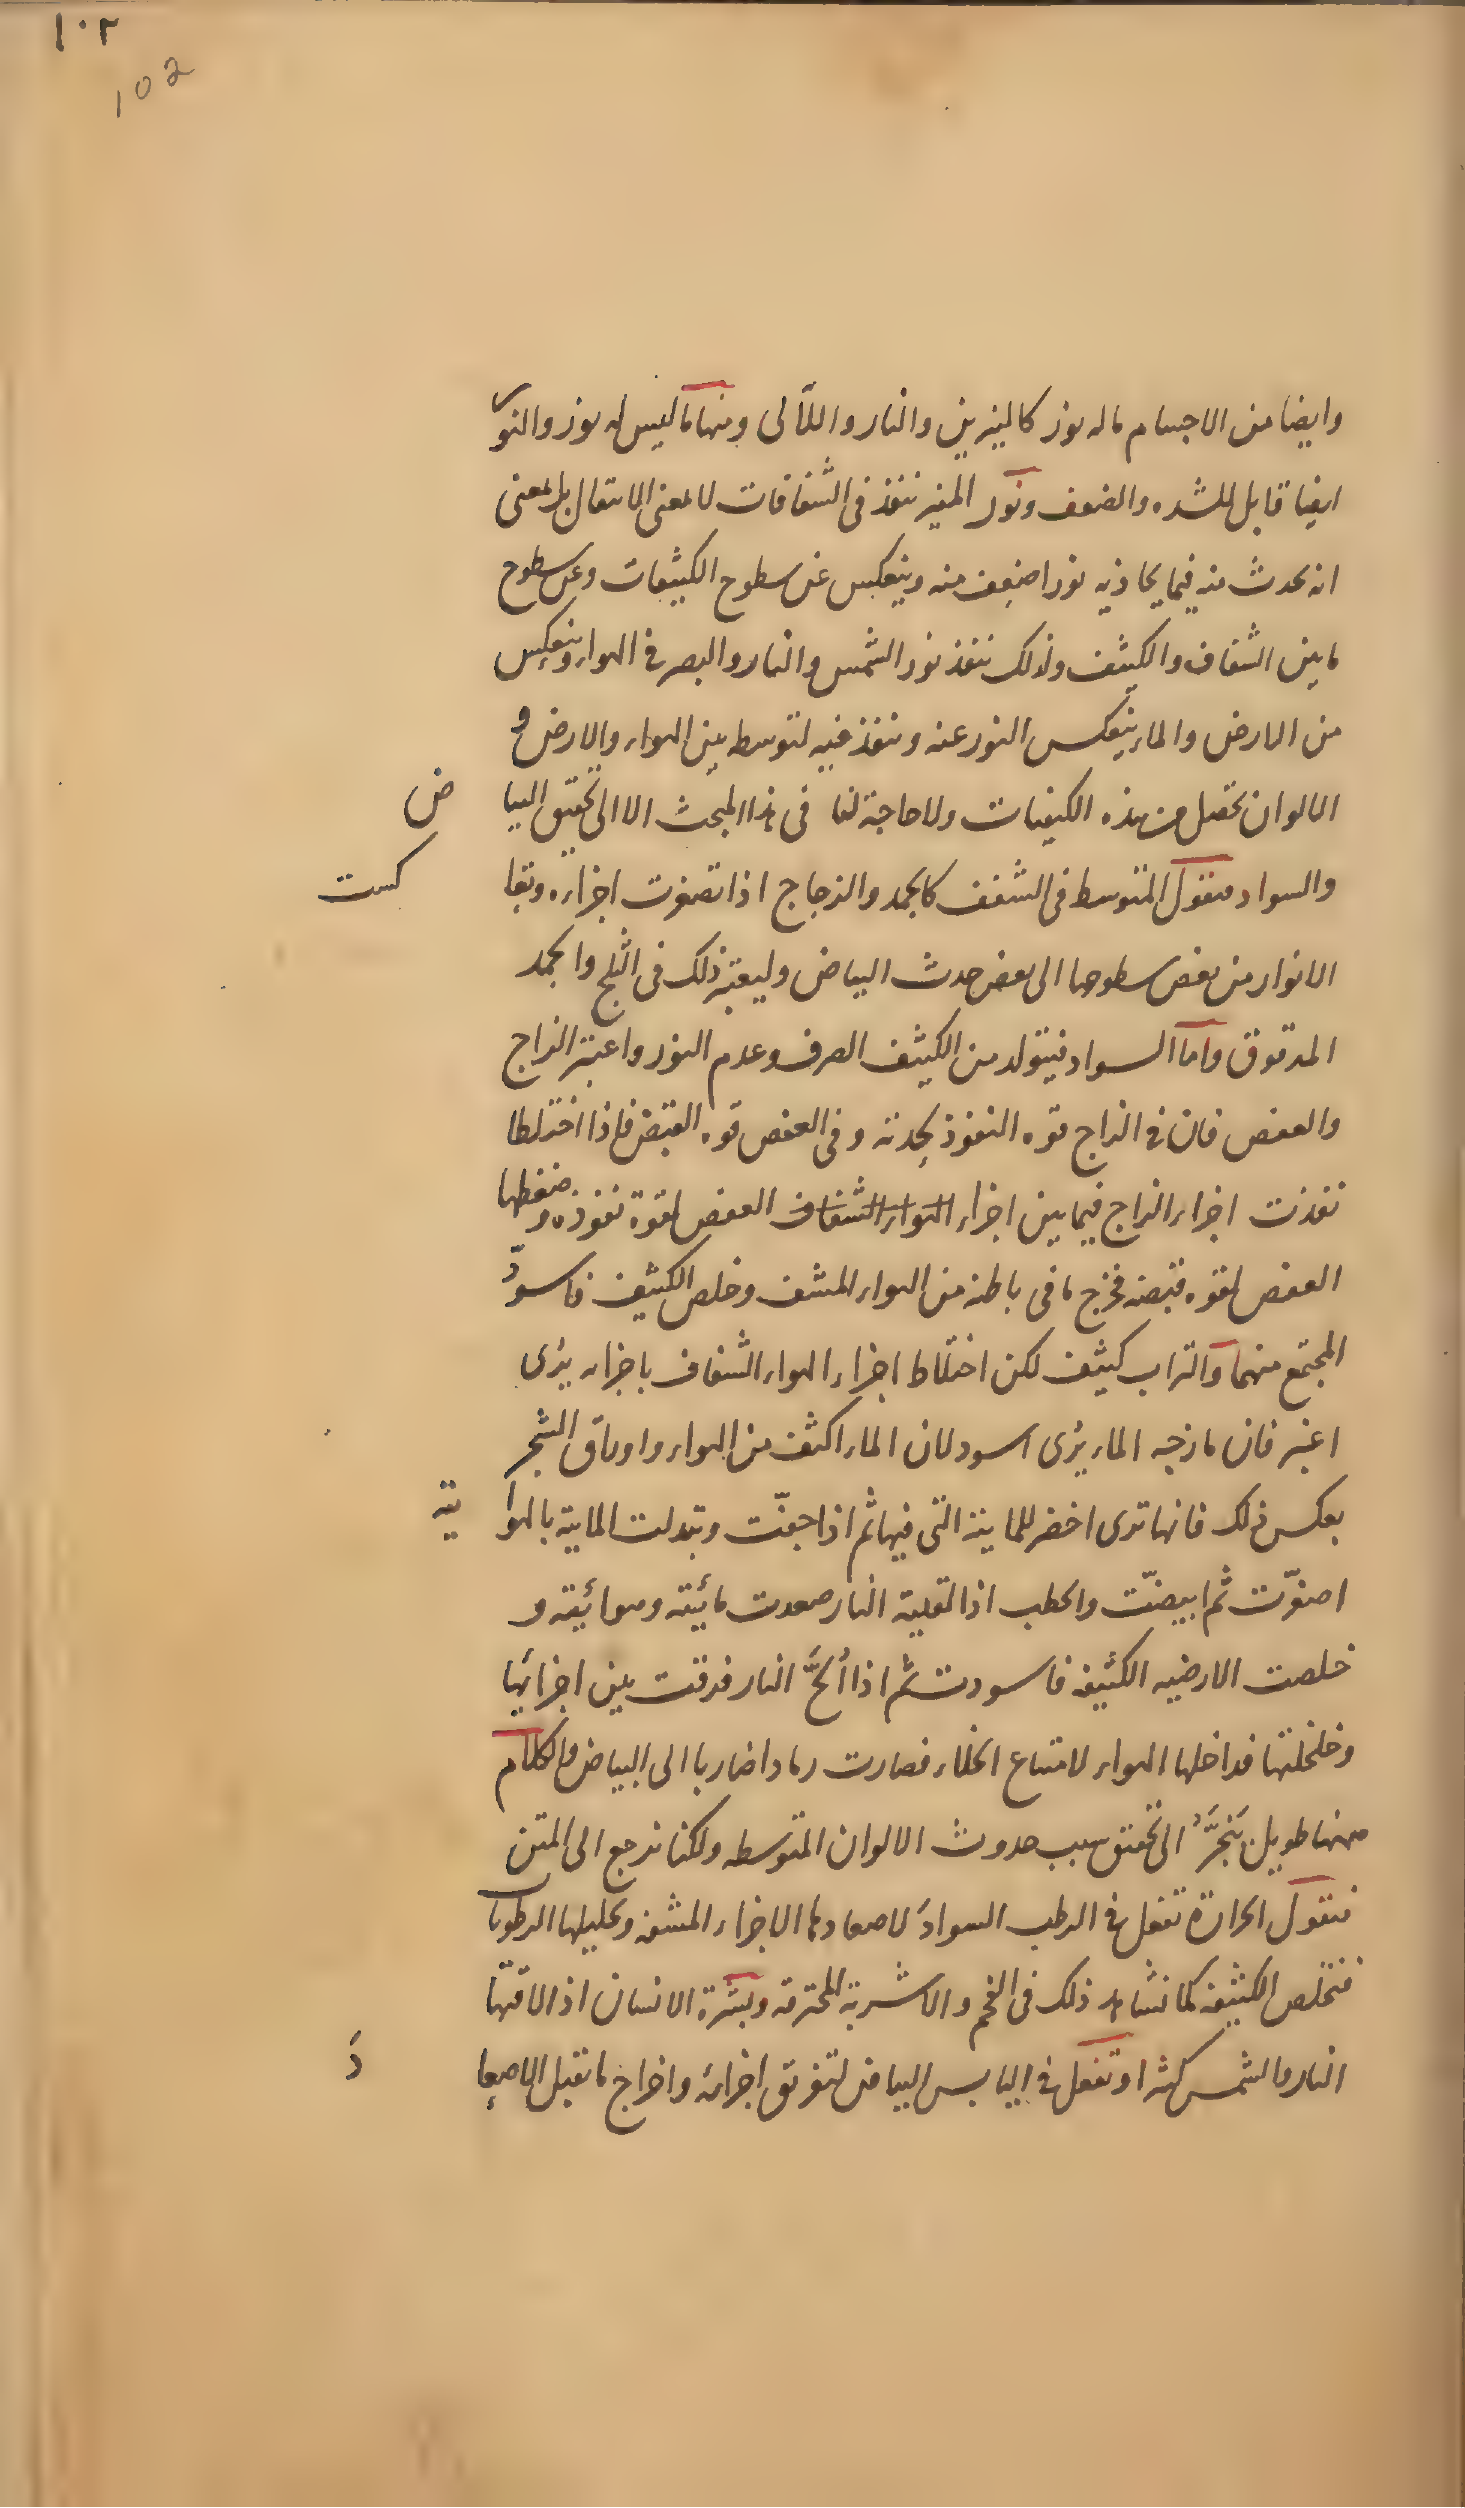 ١٠٢
102
وايضا من الاجسام ما له نور كالنيرين والنار واللآلى ومنها ما ليس له نور والنور
ايضا قابل للشده والضعف ونور المنير ينفذ فى الشفافات لا بمعنى الانتقال بل بمعنى
انه يحدث منه فيما يحاذيه نورا اضعف منه وينعكس عن سطوح الكثيفات وعن سطوح
ما بين الشفاف والكثيف ولذلك ينفذ نور الشمس والنار والبصر فى الهواء وينعكس
من الارض والماء ينعكس النور عنه وينفذ فيه لتوسطه بين الهواء والارض و
الالوان تحصل من هذه الكيفيات ولا حاجة لنا فى هذا المبحث الا الى تحقيق البيا ض
والسواد فنقول المتوسط فى الشفف كالجمد والزجاج اذا تصغرت اجزاءه وتعا كست
الانوار من بعض سطوحها الى بعض حدث البياض وليعتبر ذلك فى الثلج والجمد
المدقوق واما السواد فيتولد من الكثيف الصرف وعدم النور واعتبر الزاج
والعفص فان فى الزاج قوه النفوذ بحدته وفى العفص قوه القبض فاذا اختلطا
نفذت اجزاء الزاج فيما بين اجزاء الهواء الشفاف العفص لقوة نفوذه وضغطها
العفص لقوه قبضه فخرج ما فى باطنه من الهواء المشف وخلص الكثيف فاسودّ
المجتمع منهما والتراب كثيف لكن اختلاط اجزاء الهواء الشفاف باجزاءه يرى
اغبر فان مازجه الماء يرى اسود لان الماء اكثف من الهواء واوراق الشجر
بعكس ذلك فانها ترى اخضر للماينة التى فيها ثم اذا جفّت وتبدلت المايية بالهوا ئية
اصفرّت ثم ابيضّت والحطب اذا لقيته النار صعدت مائيته وهوائيته و
خلصت الارضيه الكثيفه فاسودت ثم اذا ألحَّ النار فرقت بين اجزائها
وخلخلتها فداخلها الهواء لامتناع الخلاء فصارت رمادا ضاربا الى البياض والكلام
ههنا طويل يَنجَرّ الى تحقيق سبب حدوث الالوان المتوسطه ولكنا نرجع الى المتن
فنقول الحرارة تفعل فى الرطب السوادَ لاصعادها الاجزاء المشفه وتحليلها الرطوبات
فتخلص الكثيفه كما نشاهد ذلك فى الفحم والاشربة المحترقه وبشرة الانسان اذا لاقتها
النار والشمس كثيرا وتفعل فى اليابس البياض لتفريق اجزائه واخراج ما يقبل الاصعا دَ